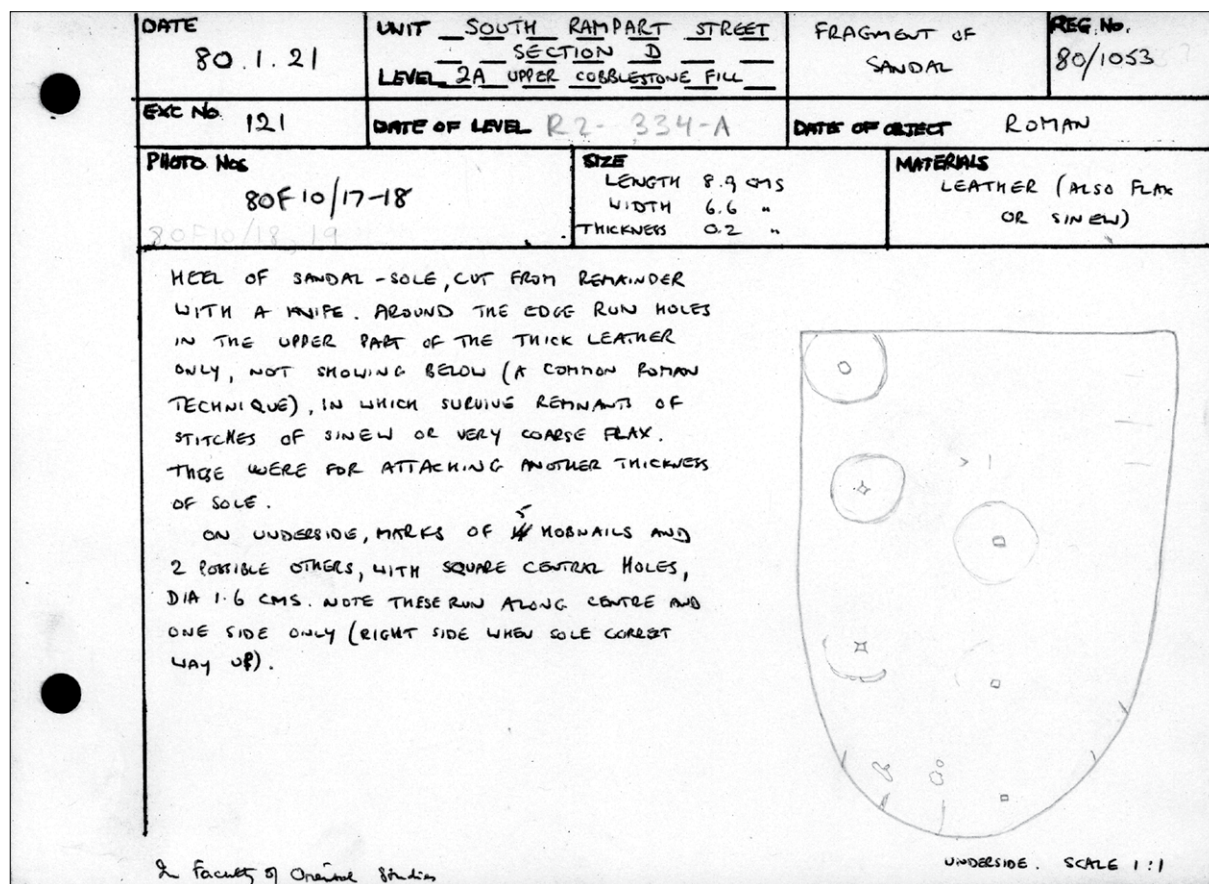 DATE
80.1.21
UNIT SOUTH RAMPART STREET
SECTION D
LEVEL 2A UPPER COBBLESTONE FILL
FRAGMENT OF
SANDAL
REG. No.
80/1053
EXC No. 121
DATE OF LEVEL R2-334-A
DATE OF OBJECT ROMAN
PHOTO Nos
80F10/17-18
80F10/18, 19
SIZE
LENGTH 8.9 CMS
WIDTH 6.6 "
THICKNESS 0.2 "
MATERIALS
LEATHER (ALSO FLAX
OR SINEW)
HEEL OF SANDAL-SOLE, CUT FROM REMAINDER
WITH A KNIFE. AROUND THE EDGE RUN HOLES
IN THE UPPER PART OF THE THICK LEATHER
ONLY, NOT SHOWING BELOW (A COMMON ROMAN
TECHNIQUE), IN WHICH SURVIVE REMNANTS OF
STITCHES OF SINEW OR VERY COARSE FLAX.
THESE WERE FOR ATTACHING ANOTHER THICKNESS
OF SOLE.
ON UNDERSIDE, MARKS OF 5 HOBNAILS AND
2 POSSIBLE OTHERS, WITH SQUARE CENTRAL HOLES,
DIA 1.6 CMS. NOTE THESE RUN ALONG CENTRE AND
ONE SIDE ONLY (RIGHT SIDE WHEN SOLE CORRECT
WAY UP).
UNDERSIDE. SCALE 1:1
In Faculty of Oriental Studies